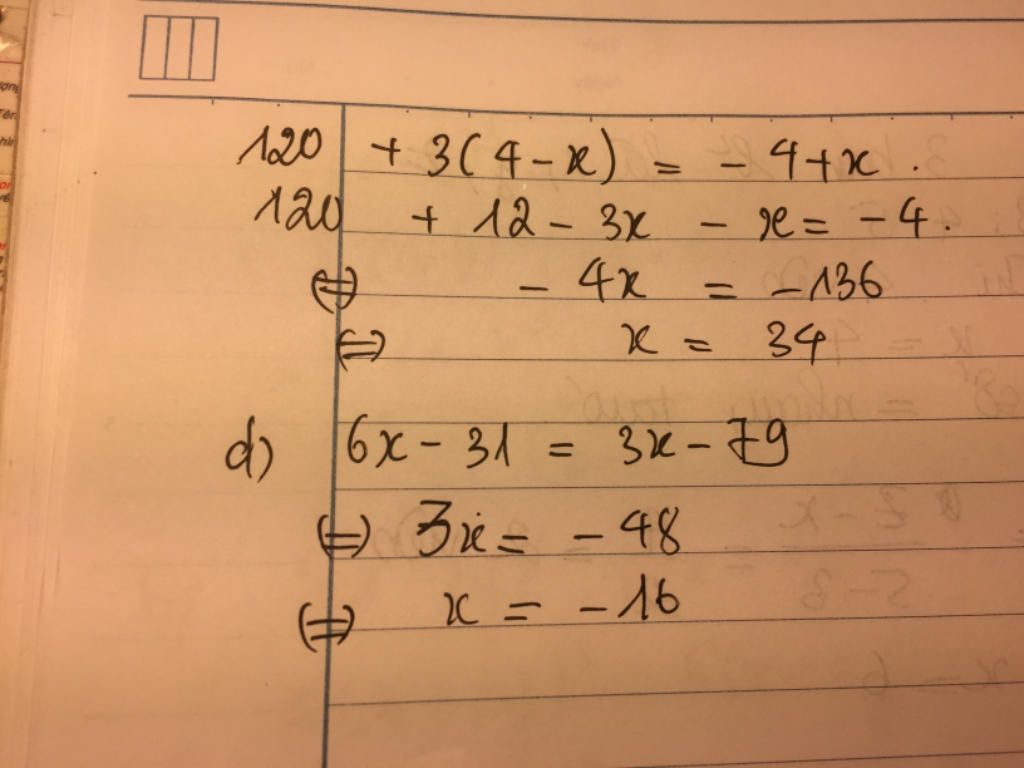 120 + 3(4 - x) = - 4 + x .
120 + 12 - 3x - x = - 4 .
⇔ - 4x = - 136
⇔ x = 34
d) 6x - 31 = 3x - 79
⇔ 3x = - 48
⇔ x = - 16